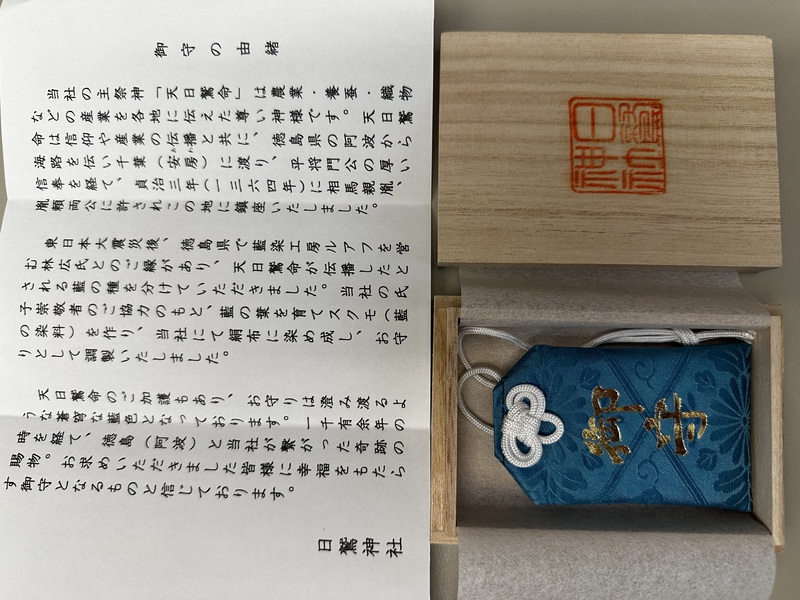 御守の由緒
当社の主祭神「天日鷲命」は農業・養蚕・織物
などの産業を各地に伝えた尊い神様です。天日鷲
命は信仰や産業の伝播と共に、徳島県の阿波から
海路を伝い千葉（安房）に渡り、平将門公の厚い
信奉を経て、貞治三年（一三六四年）に相馬親胤、
胤頼両公に許されこの地に鎮座いたしました。
東日本大震災後、徳島県で藍染工房ルアフを営
む林広氏とのご縁があり、天日鷲命が伝播したと
される藍の種を分けていただきました。当社の氏
子崇敬者のご協力のもと、藍の葉を育てスクモ（藍
の染料）を作り、当社にて絹布に染め成し、お守
りとして調製いたしました。
天日鷲命のご加護もあり、お守りは澄み渡るよ
うな蒼穹な藍色となっております。一千有余年の
時を経て、徳島（阿波）と当社が繋がった奇跡の
賜物。お求めいただきました皆様に幸福をもたら
す御守となるものと信じております。
日鷲神社
日鷲
神社
御守